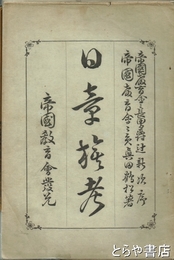 帝國教育會長男爵辻新次序
帝國教育會々員奥田鶴松著
日章旗考
帝國教育會發兌
とらや書店